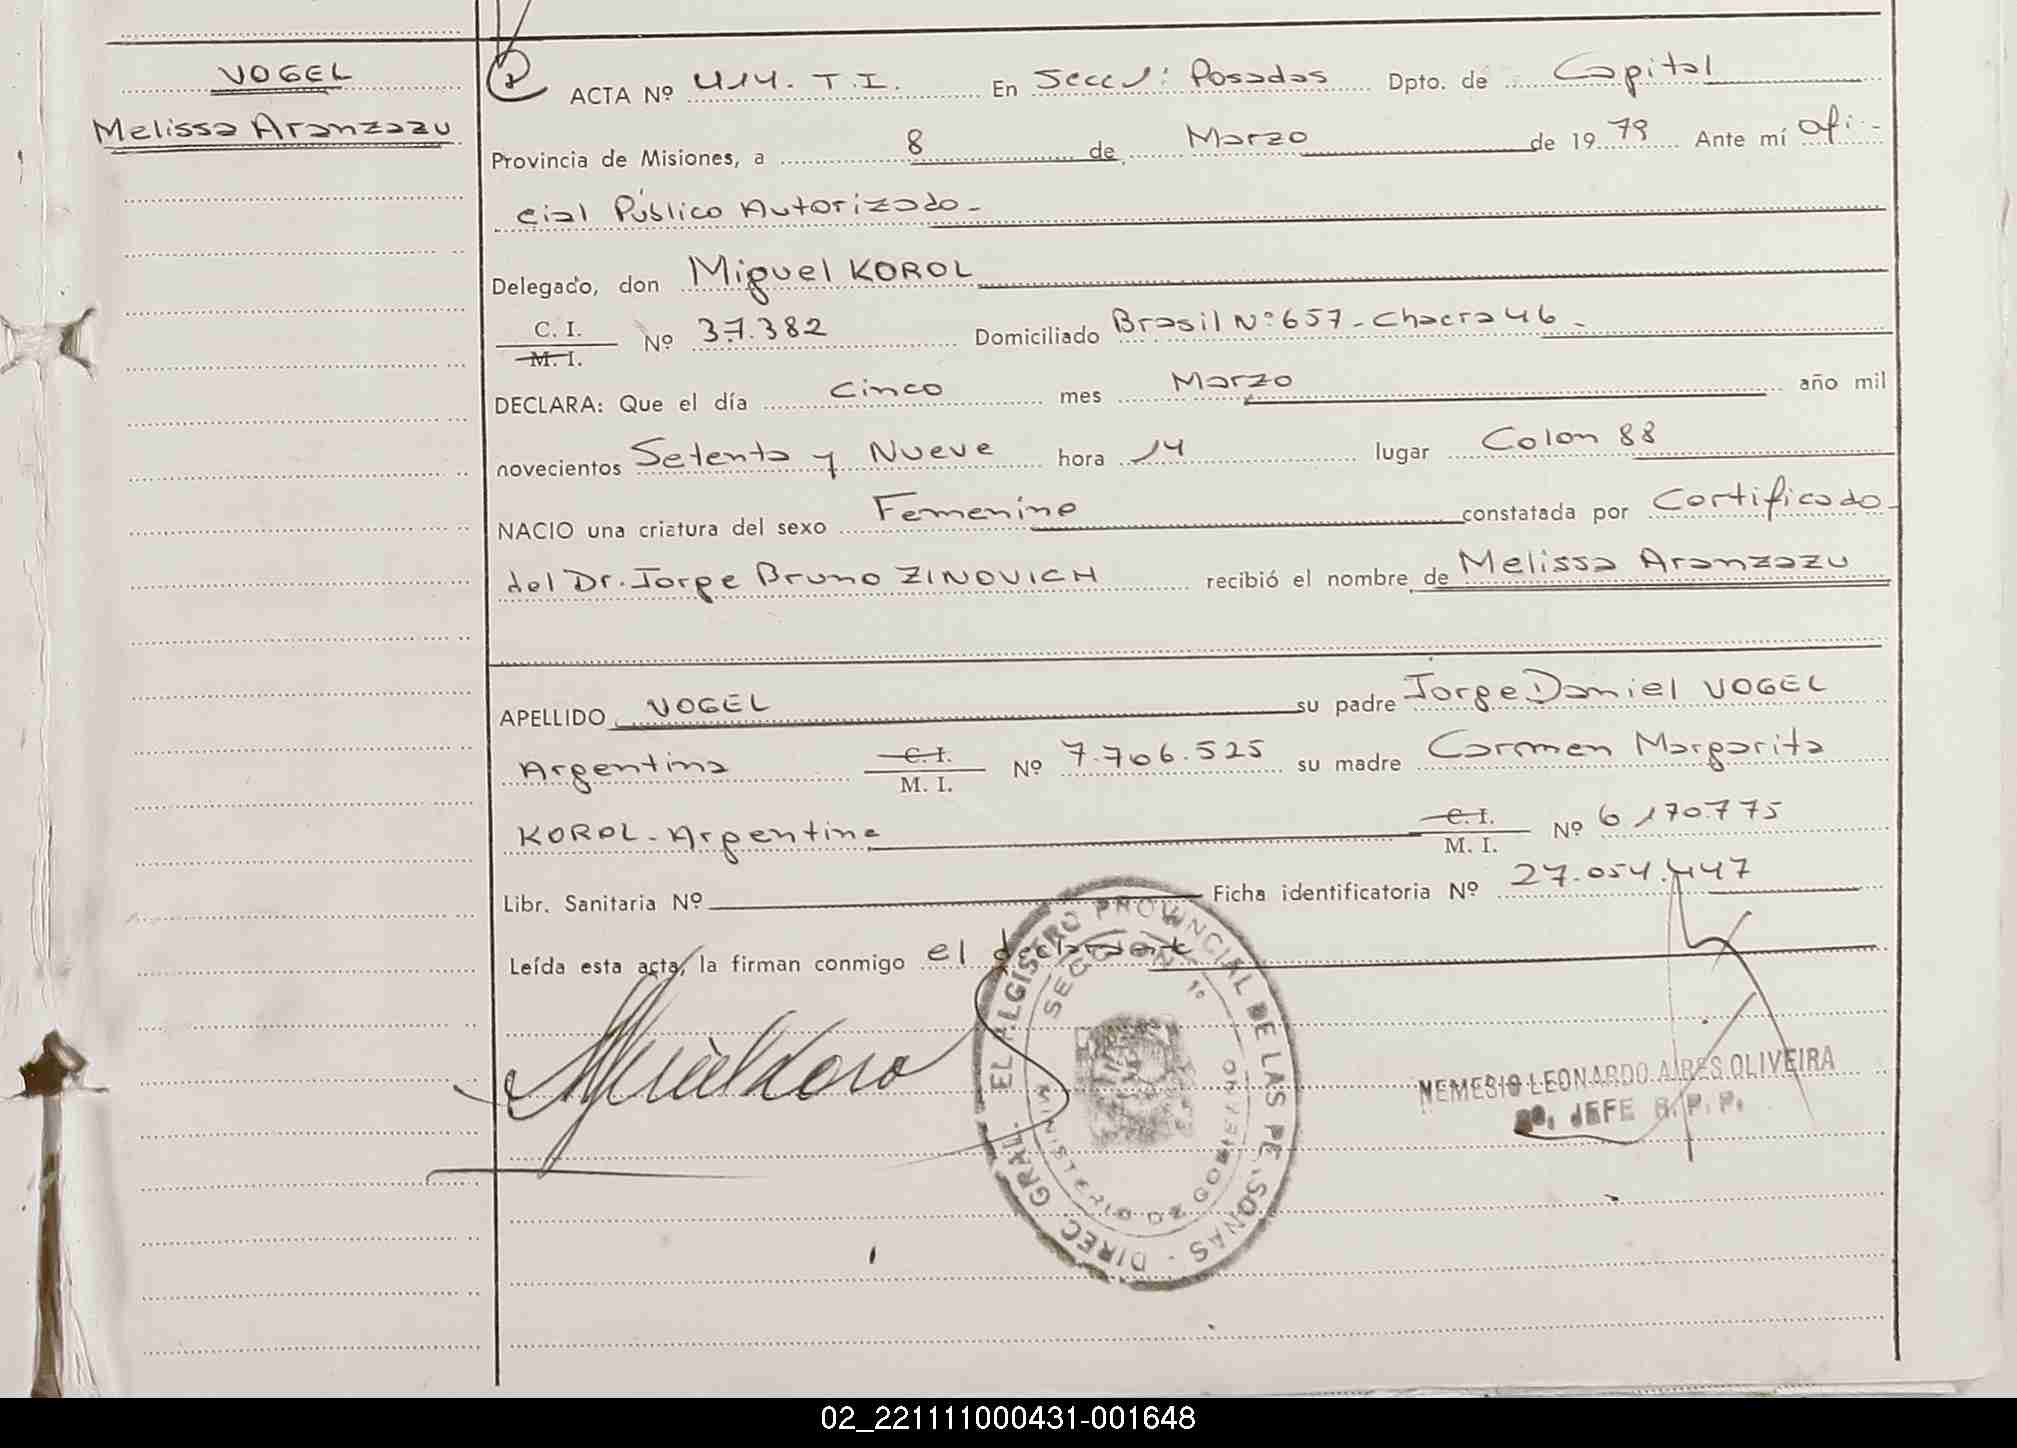 VOGEL
Melissa Aranzazu
ACTA Nº 414. T.I. En Secc 1: Posadas Dpto. de Capital
Provincia de Misiones, a 8 de Marzo de 1979 Ante mí Ofi-
cial Público Autorizado-
Delegado, don Miguel KOROL
C. I.
M. I.
Nº 37.382 Domiciliado Brasil Nº 657-Chacra 46-
DECLARA: Que el día Cinco mes Marzo año mil
novecientos Setenta y Nueve hora 14 lugar Colon 88
NACIO una criatura del sexo Femenino constatada por Certificado
del Dr. Jorge Bruno ZINOVICH recibió el nombre de Melissa Aranzazu
APELLIDO VOGEL su padre Jorge Daniel VOGEL
Argentina C. I. M. I. Nº 7.706.525 su madre Carmen Margarita
KOROL-Argentina C. I. M. I. Nº 6170.775
Libr. Sanitaria Nº Ficha identificatoria Nº 27.054.447
Leída esta acta, la firman conmigo el declarante
DIREC. GRAL. DEL REGISTRO PROVINCIAL DE LAS PERSONAS
SECCION 1º
MINISTERIO DE GOBIERNO
NEMESIO LEONARDO AIRES OLIVEIRA
JEFE R. P. P.
02_221111000431-001648